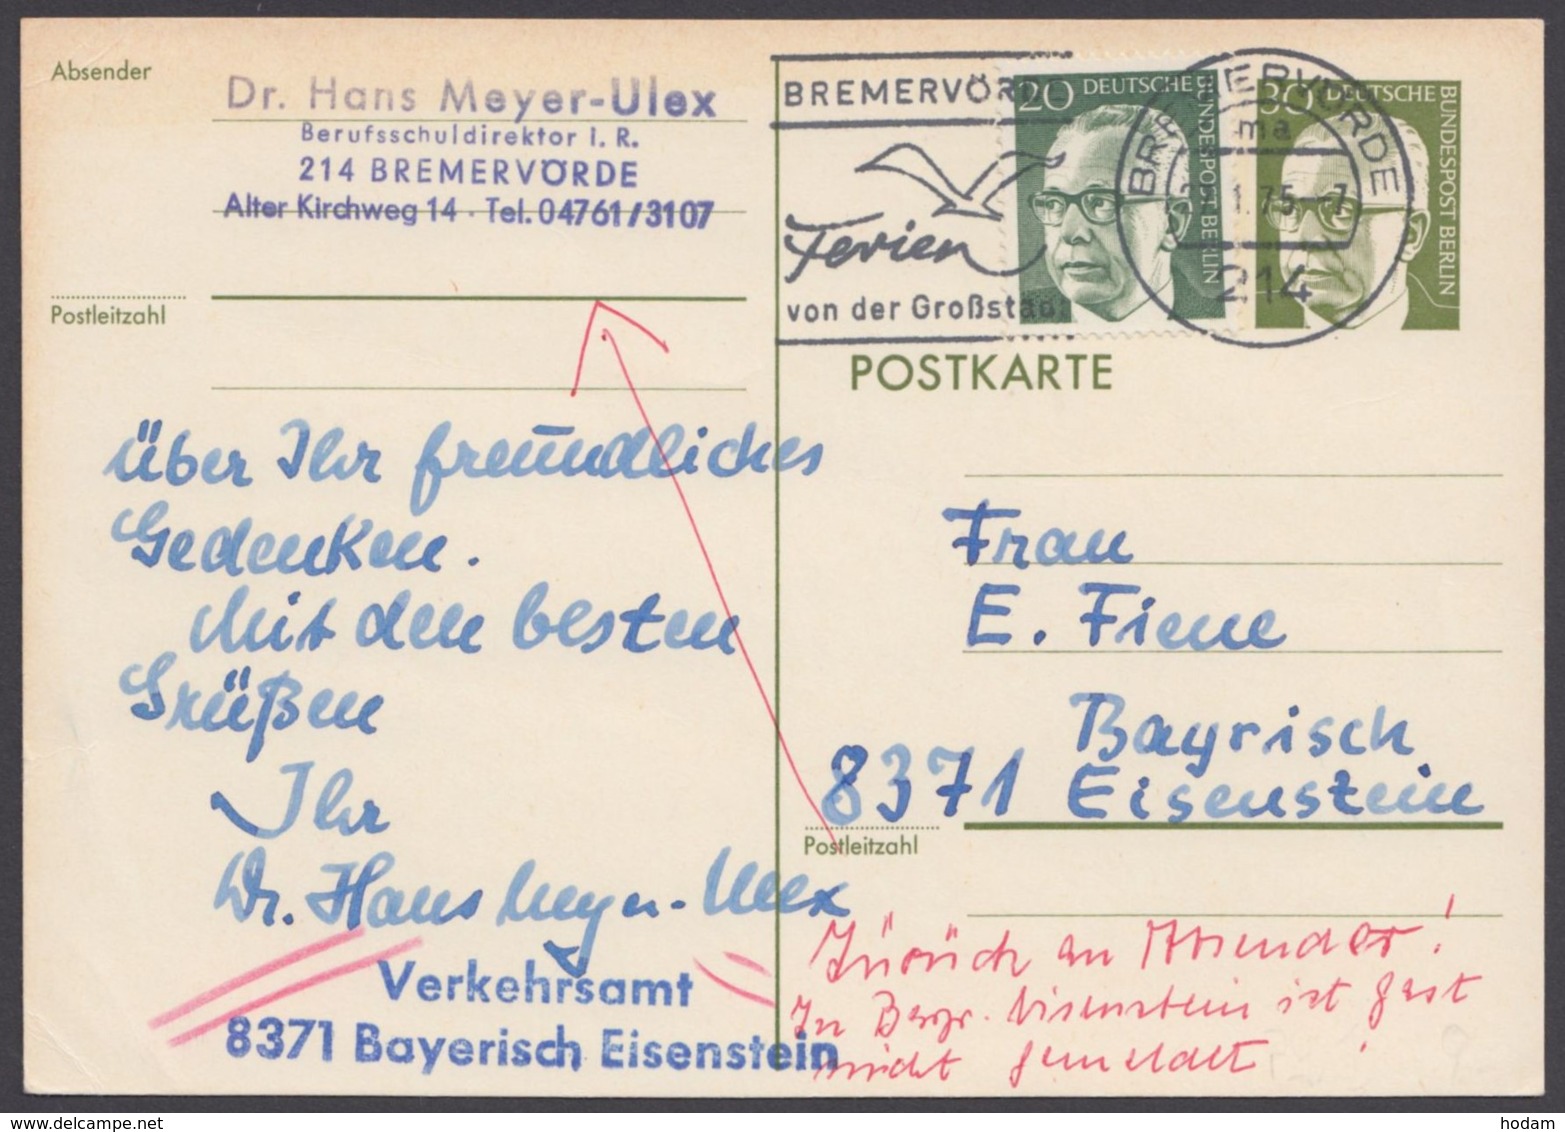 Absender
Dr. Hans Meyer-Ulex
Berufsschuldirektor i. R.
214 BREMERVÖRDE
Alter Kirchweg 14 · Tel. 04761/3107
Postleitzahl
BREMERVÖR
Ferien
von der Großstad
20 DEUTSCHE
BUNDESPOST BERLIN
BREMERVÖRDE
ma
1.75-7
214
30 DEUTSCHE
BUNDESPOST BERLIN
POSTKARTE
über Ihr freundliches
Gedenken.
Mit den besten
Grüßen
Ihr
Dr. Hans Meyer-Ulex
Verkehrsamt
8371 Bayerisch Eisenstein
Frau
E. Fiene
Bayrisch
8371 Eisenstein
Postleitzahl
Zurück an Absender!
In Bayr. Eisenstein ist Gast
nicht gemeldet
hodam